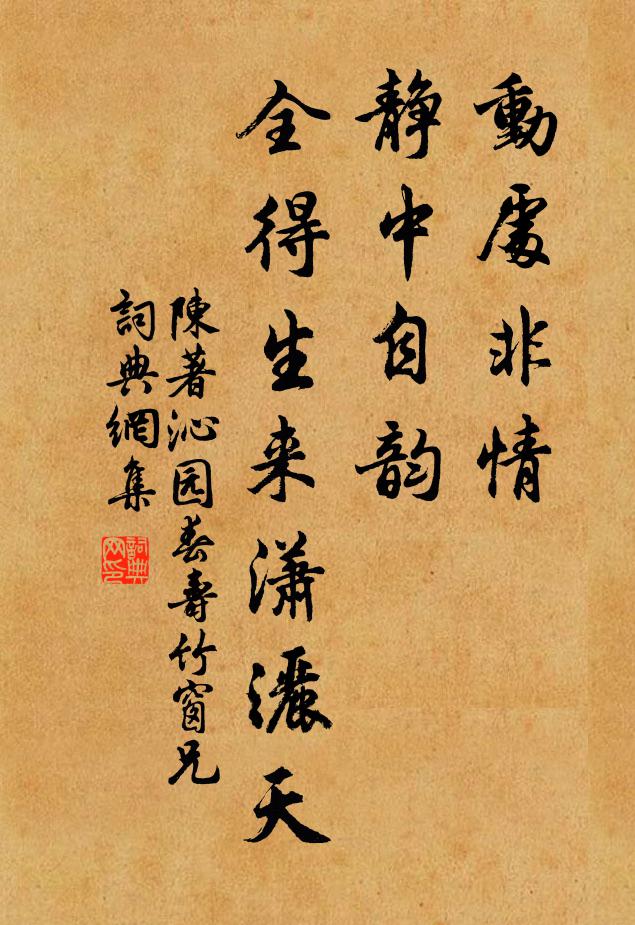 動處非情
静中自韵
全得生来瀟灑天
陳著沁园春壽竹窗兄
詞典網集
詞典
网印